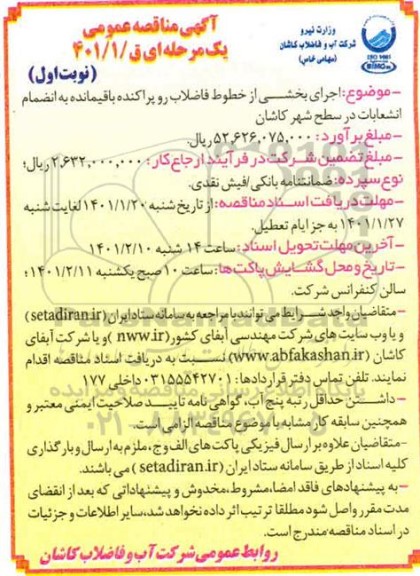 وزارت نیرو
شرکت آب و فاضلاب کاشان
(سهامی خاص)
ISO 9001
آگهی مناقصه عمومی
یک مرحله ای ق/۴۰۱/۱
(نوبت اول)
-موضوع: اجرای بخشی از خطوط فاضلاب رو پراکنده باقیمانده به انضمام
انشعابات در سطح شهر کاشان
-مبلغ برآورد: ۵۲,۶۲۶,۰۷۵,۰۰۰ ریال.
-مبلغ تضمین شرکت در فرآیند ارجاع کار: ۲,۶۳۲,۰۰۰,۰۰۰ ریال؛
نوع سپرده: ضمانتنامه بانکی/فیش نقدی.
-مهلت دریافت اسناد مناقصه: از تاریخ شنبه ۱۴۰۱/۱/۲۰ لغایت شنبه
۱۴۰۱/۱/۲۷ به جز ایام تعطیل.
-آخرین مهلت تحویل اسناد: ساعت ۱۴ شنبه ۱۴۰۱/۲/۱۰
-تاریخ و محل گشایش پاکت ها: ساعت ۱۰ صبح یکشنبه ۱۴۰۱/۲/۱۱؛
سالن کنفرانس شرکت.
-متقاضیان واجد شرایط می توانند با مراجعه به سامانه ستاد ایران (setadiran.ir)
و یا وب سایت های شرکت مهندسی آبفای کشور (nww.ir) و یا شرکت آبفای
کاشان (www.abfakashan.ir) نسبت به دریافت اسناد مناقصه اقدام
نمایند. تلفن تماس دفتر قراردادها: ۰۳۱۵۵۵۴۲۷۰۱ داخلی ۱۷۷
-داشتن حداقل رتبه پنج آب، گواهی نامه تأیید صلاحیت ایمنی معتبر و
همچنین سابقه کار مشابه با موضوع مناقصه الزامی است.
-متقاضیان علاوه بر ارسال فیزیکی پاکت های الف و ج، ملزم به ارسال و بارگذاری
کلیه اسناد از طریق سامانه ستاد ایران (setadiran.ir) می باشند.
-به پیشنهادهای فاقد امضا، مشروط، مخدوش و پیشنهاداتی که بعد از انقضای
مدت مقرر واصل شود مطلقا ترتیب اثر داده نخواهد شد، سایر اطلاعات و جزئیات
در اسناد مناقصه مندرج است.
روابط عمومی شرکت آب و فاضلاب کاشان